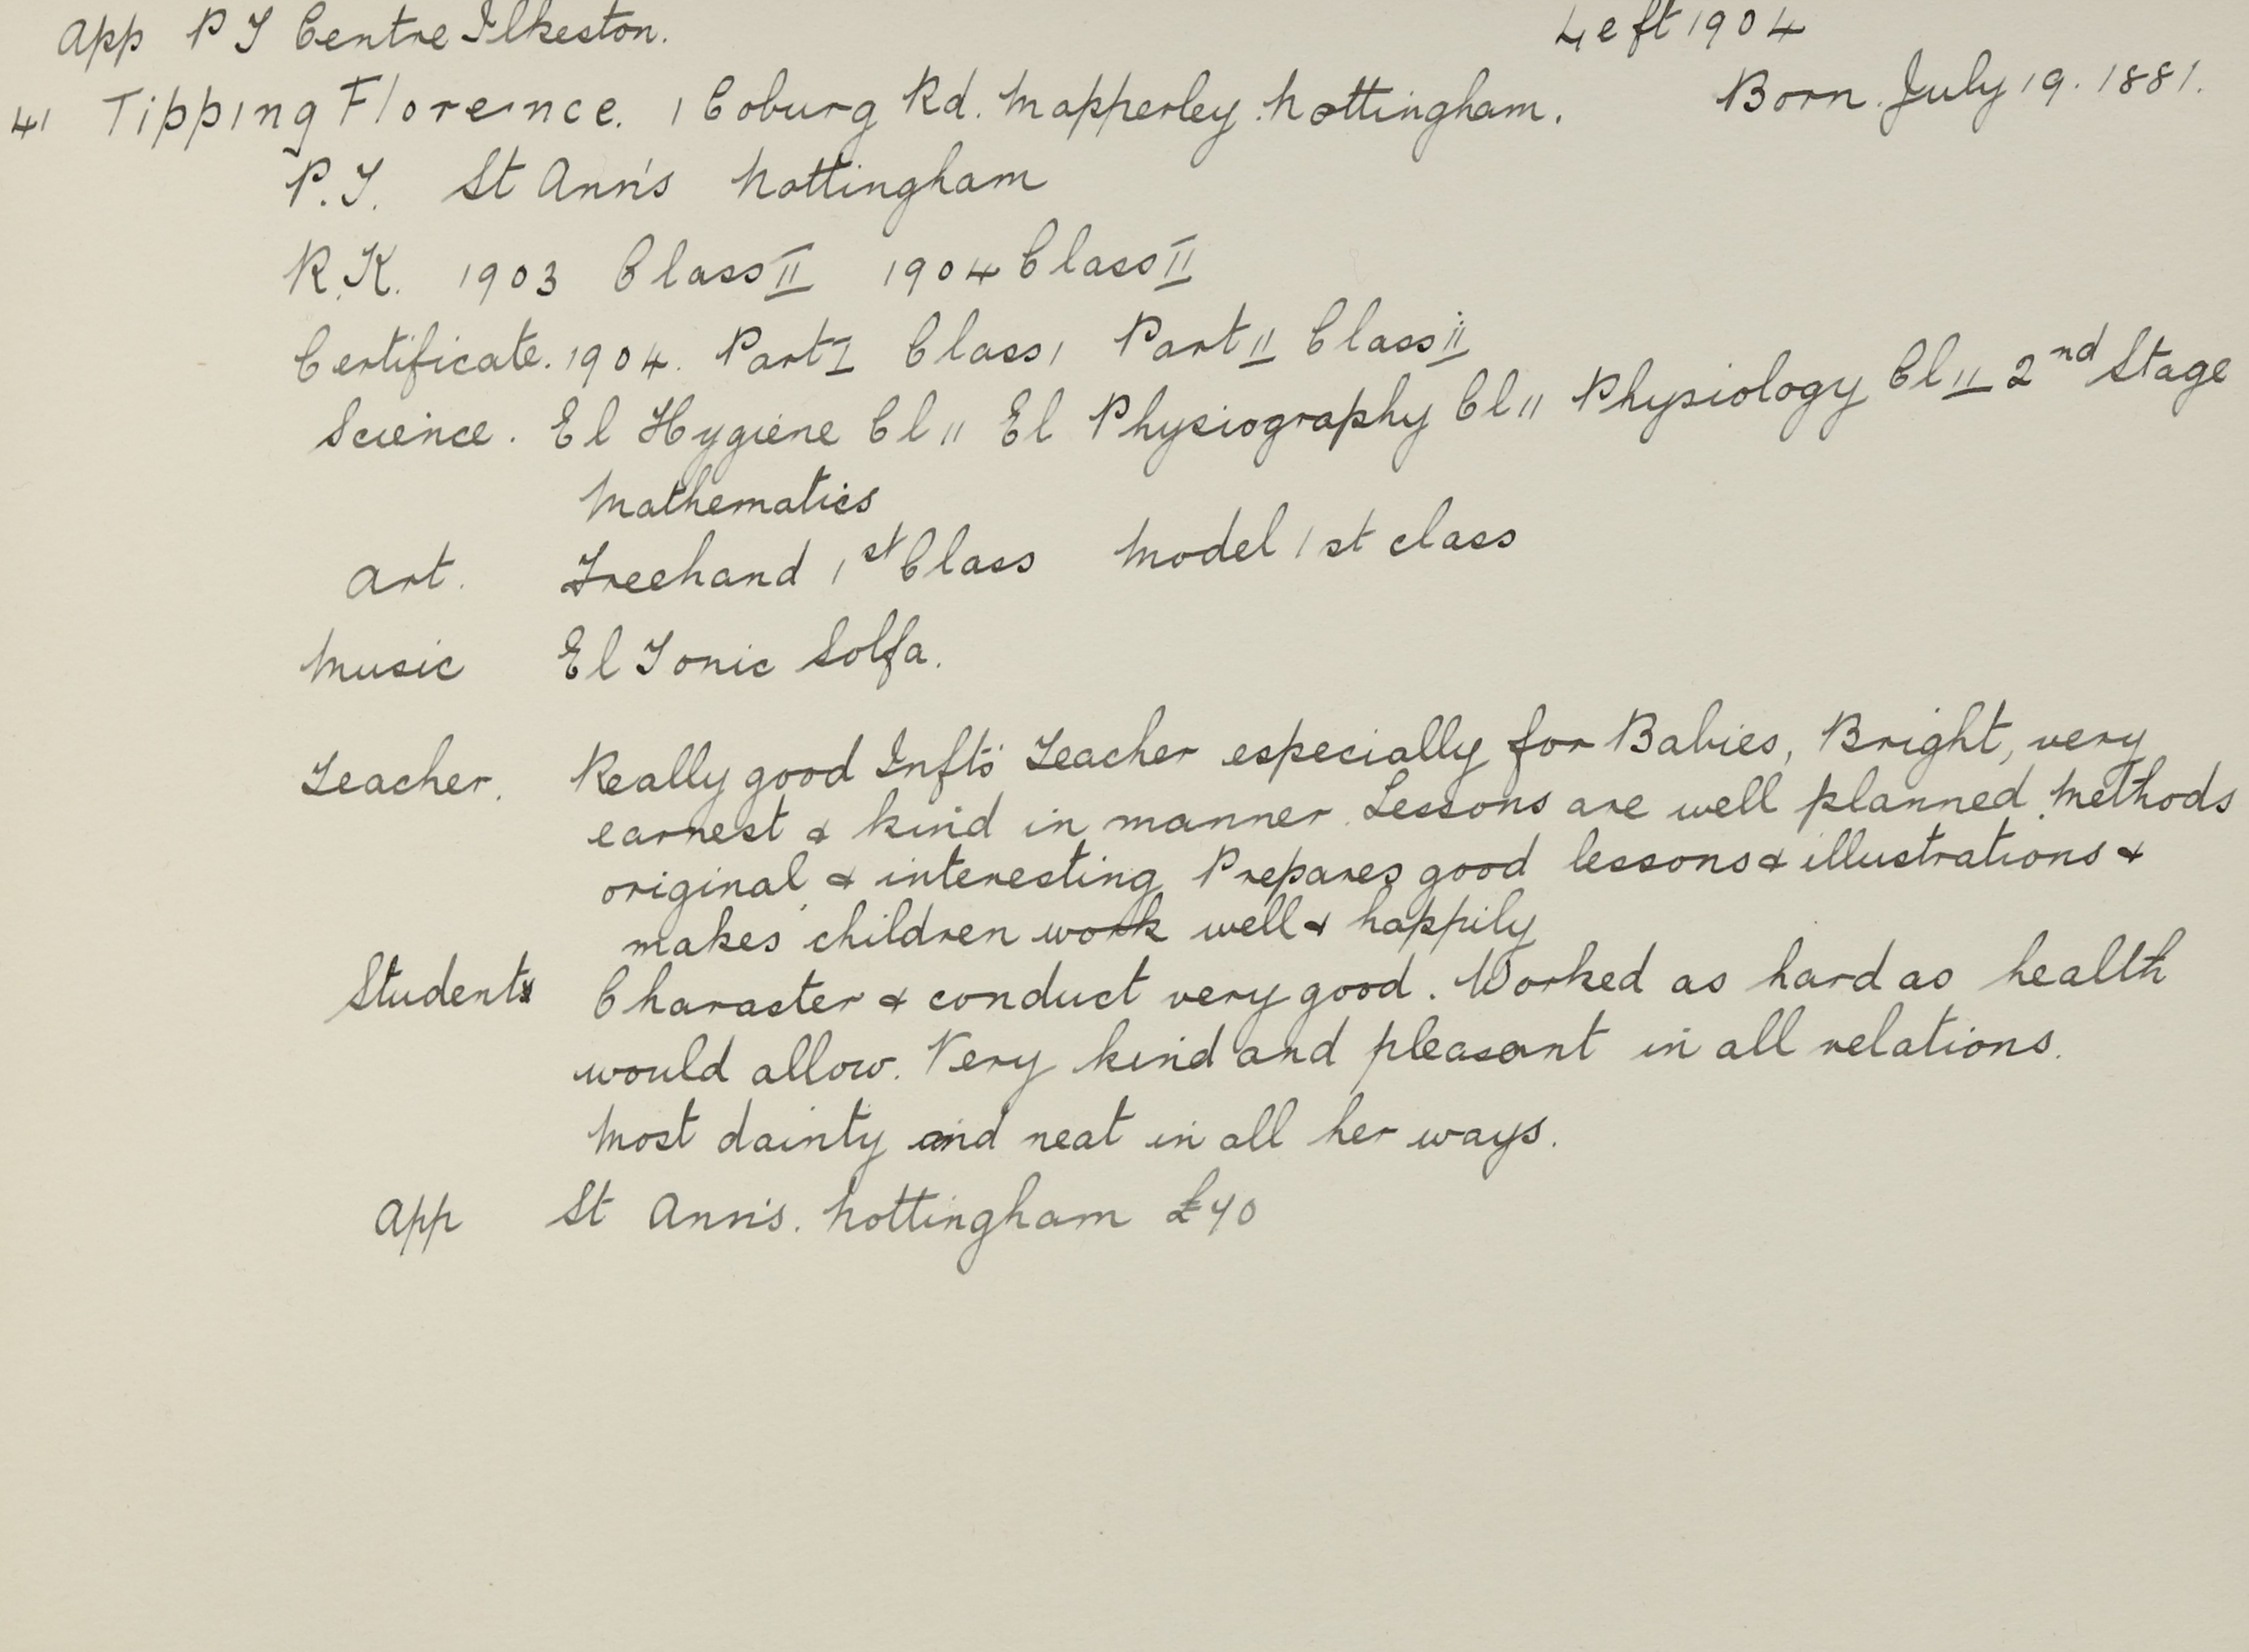 App P T Centre Ilkeston. Left 1904
41 Tipping Florence. 1 Coburg Rd. Mapperley. Nottingham. Born. July 19. 1881.
P.T. St Ann's Nottingham
R.K. 1903 Class II 1904 Class II
Certificate. 1904. Part I Class 1 Part II Class ii
Science. El Hygiene Cl II El Physiography Cl II Physiology Cl II 2nd Stage
Mathematics
Art. Freehand 1st Class Model 1st class
Music El Tonic Solfa.
Teacher. Really good Infts' Teacher especially for Babies, Bright, very
earnest & kind in manner. Lessons are well planned. Methods
original & interesting. Prepares good lessons & illustrations &
makes children work well & happily
Students Character & conduct very good. Worked as hard as health
would allow. Very kind and pleasant in all relations.
Most dainty and neat in all her ways.
App St Ann's. Nottingham £40